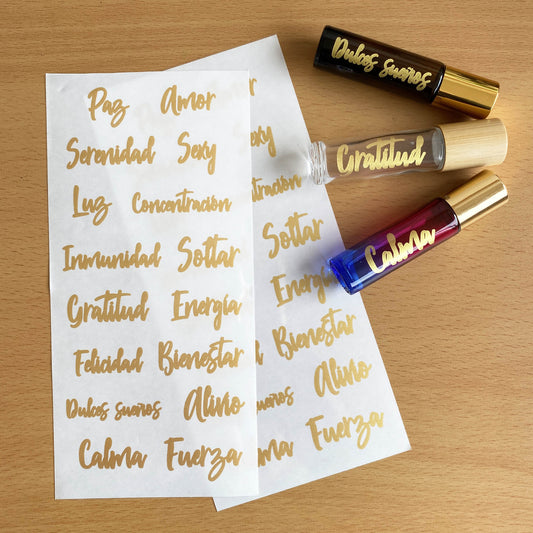 Paz Amor
Serenidad Sexy
Luz Concentración
Inmunidad Soltar
Gratitud Energía
Felicidad Bienestar
Dulces sueños Alivio
Calma Fuerza
Sexy
Soltar
Energía
Bienestar
sueños Alivio
Fuerza
Dulces sueños
Gratitud
Calma